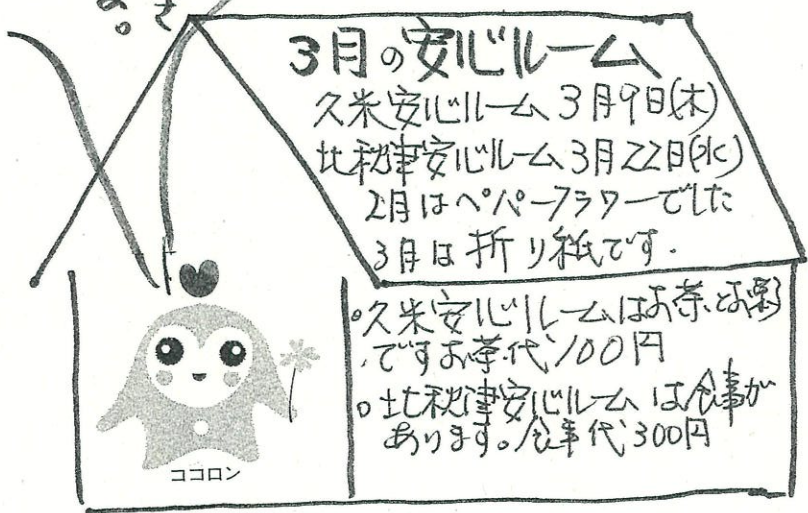 3月の安心ルーム
久米安心ルーム 3月9日(木)
北秋津安心ルーム 3月22日(水)
2月はペーパーフラワーでした
3月は折り紙です.
。久米安心ルームはお茶とお
ですお茶代100円
。北秋津安心ルームは食事が
あります。食事代300円
ココロン